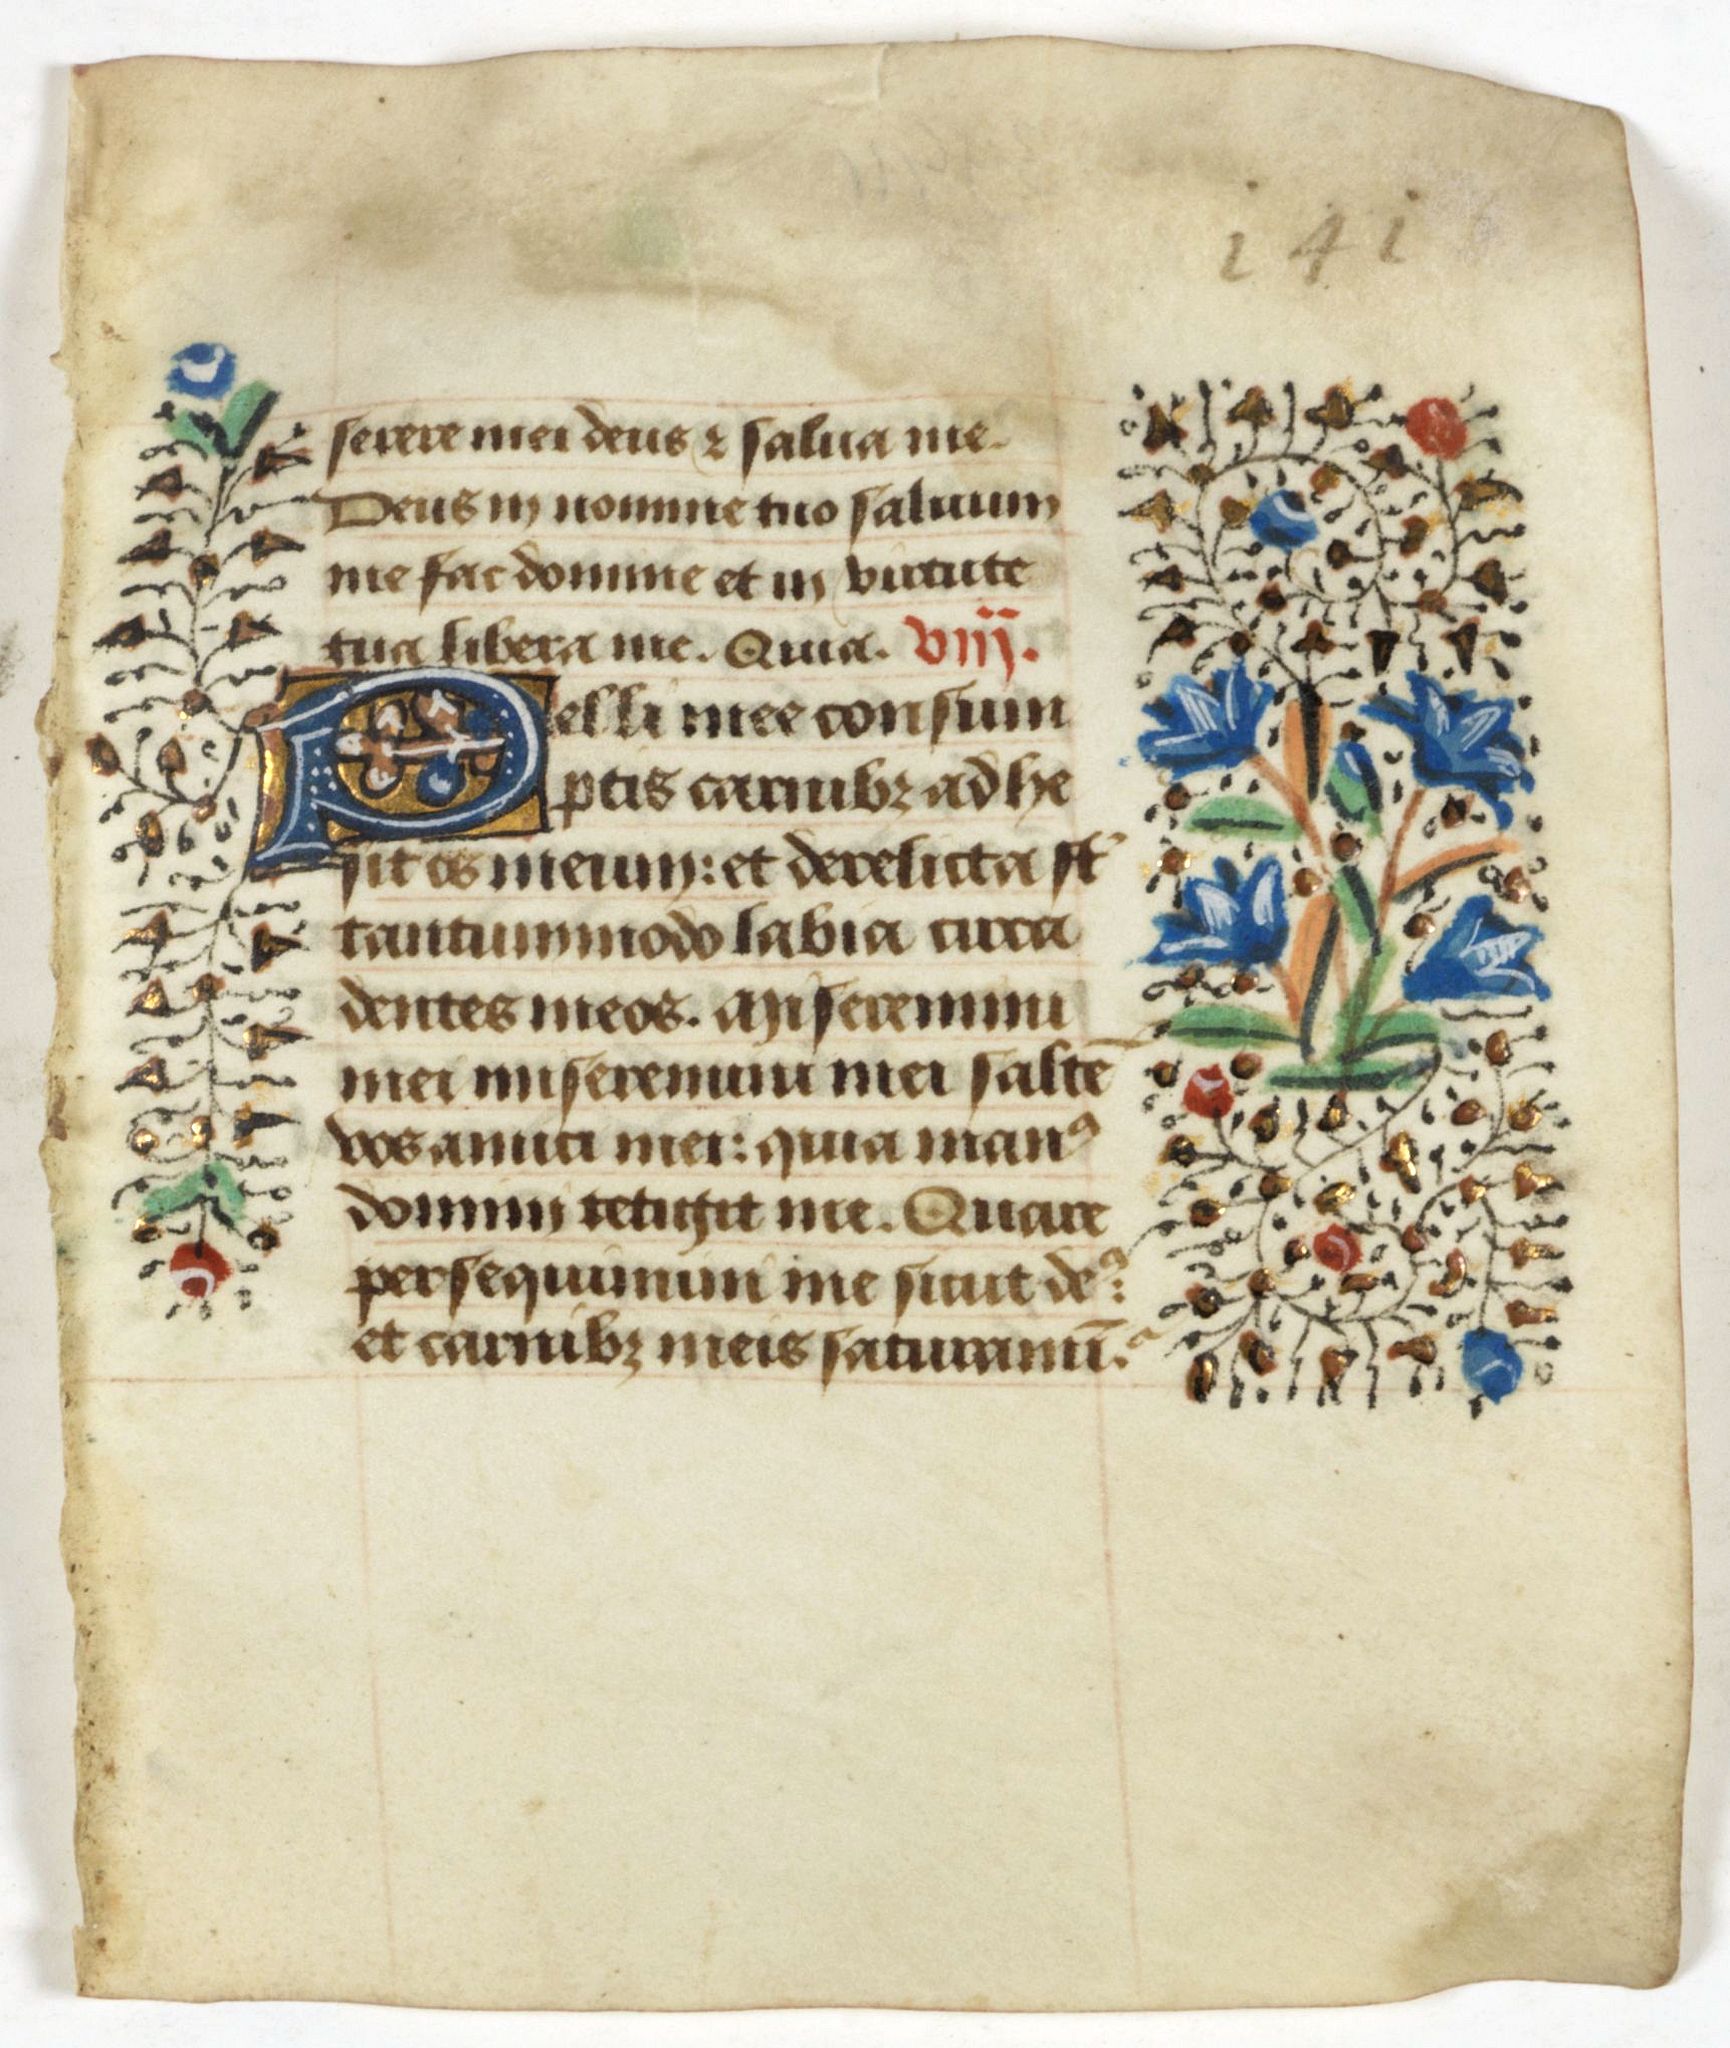 141
serere mei deus ⁊ salua me.
Deus in nomine tuo saluum
me fac domine et in virtute
tua libera me. Quia. viij.
Pelli mee consum
ptis carnibꝫ adhe
sit os meum: et derelicta st̄
tantummodo labia circa
dentes meos. Miseremini
mei miseremini mei saltē
vos amici mei: quia manꝰ
domini tetigit me. Quare
persequimini me sicut deꝰ:
et carnibꝫ meis saturamī.ᷣ